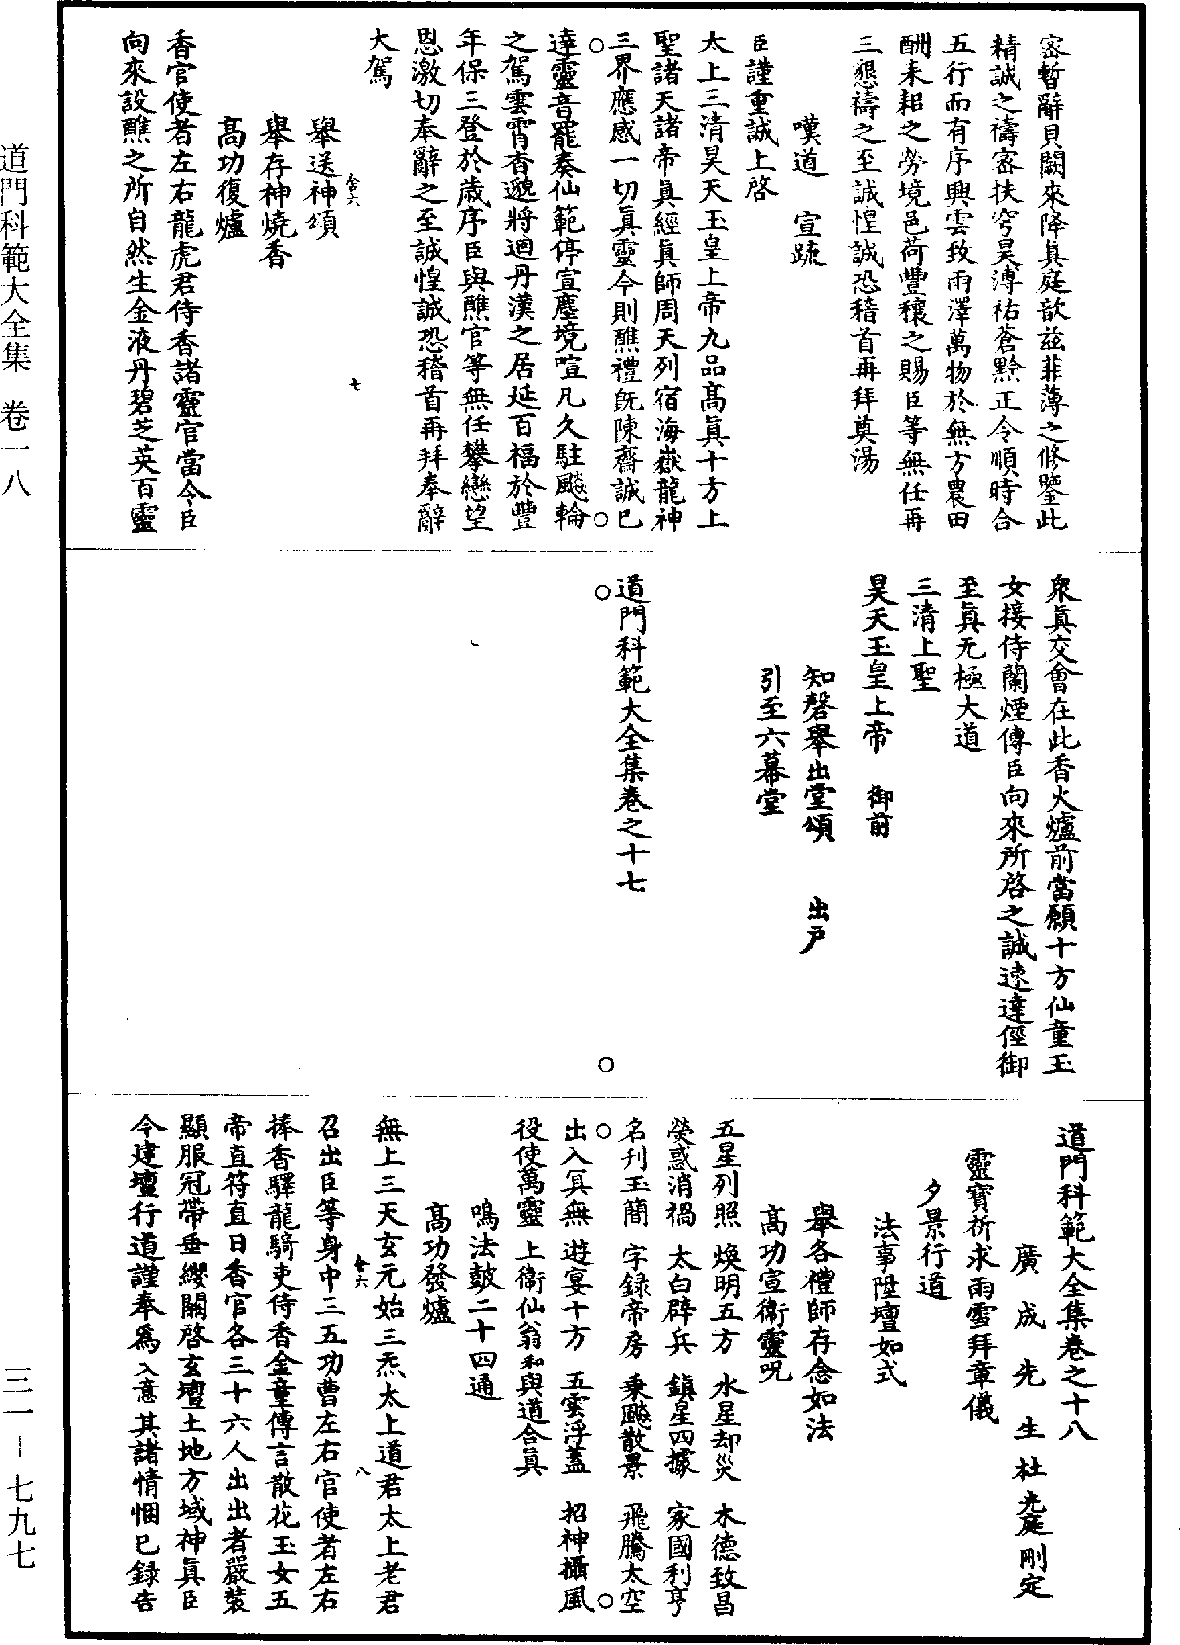 密暫辭貝闕來降真庭歆茲菲薄之修鑒此
精誠之禱密扶穹昊溥祐蒼黔正令順時合
五行而有序興雲致雨澤萬物於無方農田
酬耒耜之勞境邑荷豐穰之賜臣等無任再
三懇禱之至誠惶誠恐稽首再拜奠湯
嘆道 宣疏
臣謹重誠上啓
太上三清昊天玉皇上帝九品高真十方上
聖諸天諸帝真經真師周天列宿海嶽龍神
三界應感一切真靈今則醮禮既陳齋誠已
達靈音罷奏仙範停宣塵境喧凡久駐飈輪
之駕雲霄杳邈將迴丹漢之居延百福於豐
年保三登於歲序臣與醮官等無任攀戀望
恩激切奉辭之至誠惶誠恐稽首再拜奉辭
大駕
舉送神頌
舉存神燒香
高功復爐
香官使者左右龍虎君侍香諸靈官當令臣
向來設醮之所自然生金液丹碧芝英百靈
七
衆真交會在此香火爐前當願十方仙童玉
女接侍蘭煙傳臣向來所啓之誠速達徑御
至真无極大道
三清上聖
昊天玉皇上帝 御前
知磬舉出堂頌 出戶
引至六幕堂
道門科範大全集卷之十七
道門科範大全集卷之十八
廣成先生杜光庭刪定
靈寶祈求雨雪拜章儀
夕景行道
法事陞壇如式
舉各禮師存念如法
高功宣衞靈呪
五星列照 煥明五方 水星却災 木德致昌
熒惑消禍 太白辟兵 鎮星四據 家國利亨
名刋玉簡 字錄帝房 乘飈散景 飛騰太空
出入冥無 遊宴十方 五雲浮蓋 招神攝風
役使萬靈 上衞仙翁和與道合真
鳴法鼓二十四通
高功發爐
無上三天玄元始三炁太上道君太上老君
召出臣等身中三五功曹左右官使者左右
捧香驛龍騎吏侍香金童傳言散花玉女五
帝直符直日香官各三十六人出出者嚴裝
顯服冠帶垂纓關啓玄壇土地方域神真臣
今建壇行道謹奉爲入意其諸情悃已錄告
八
道門科範大全集 卷一八
三一－七九七